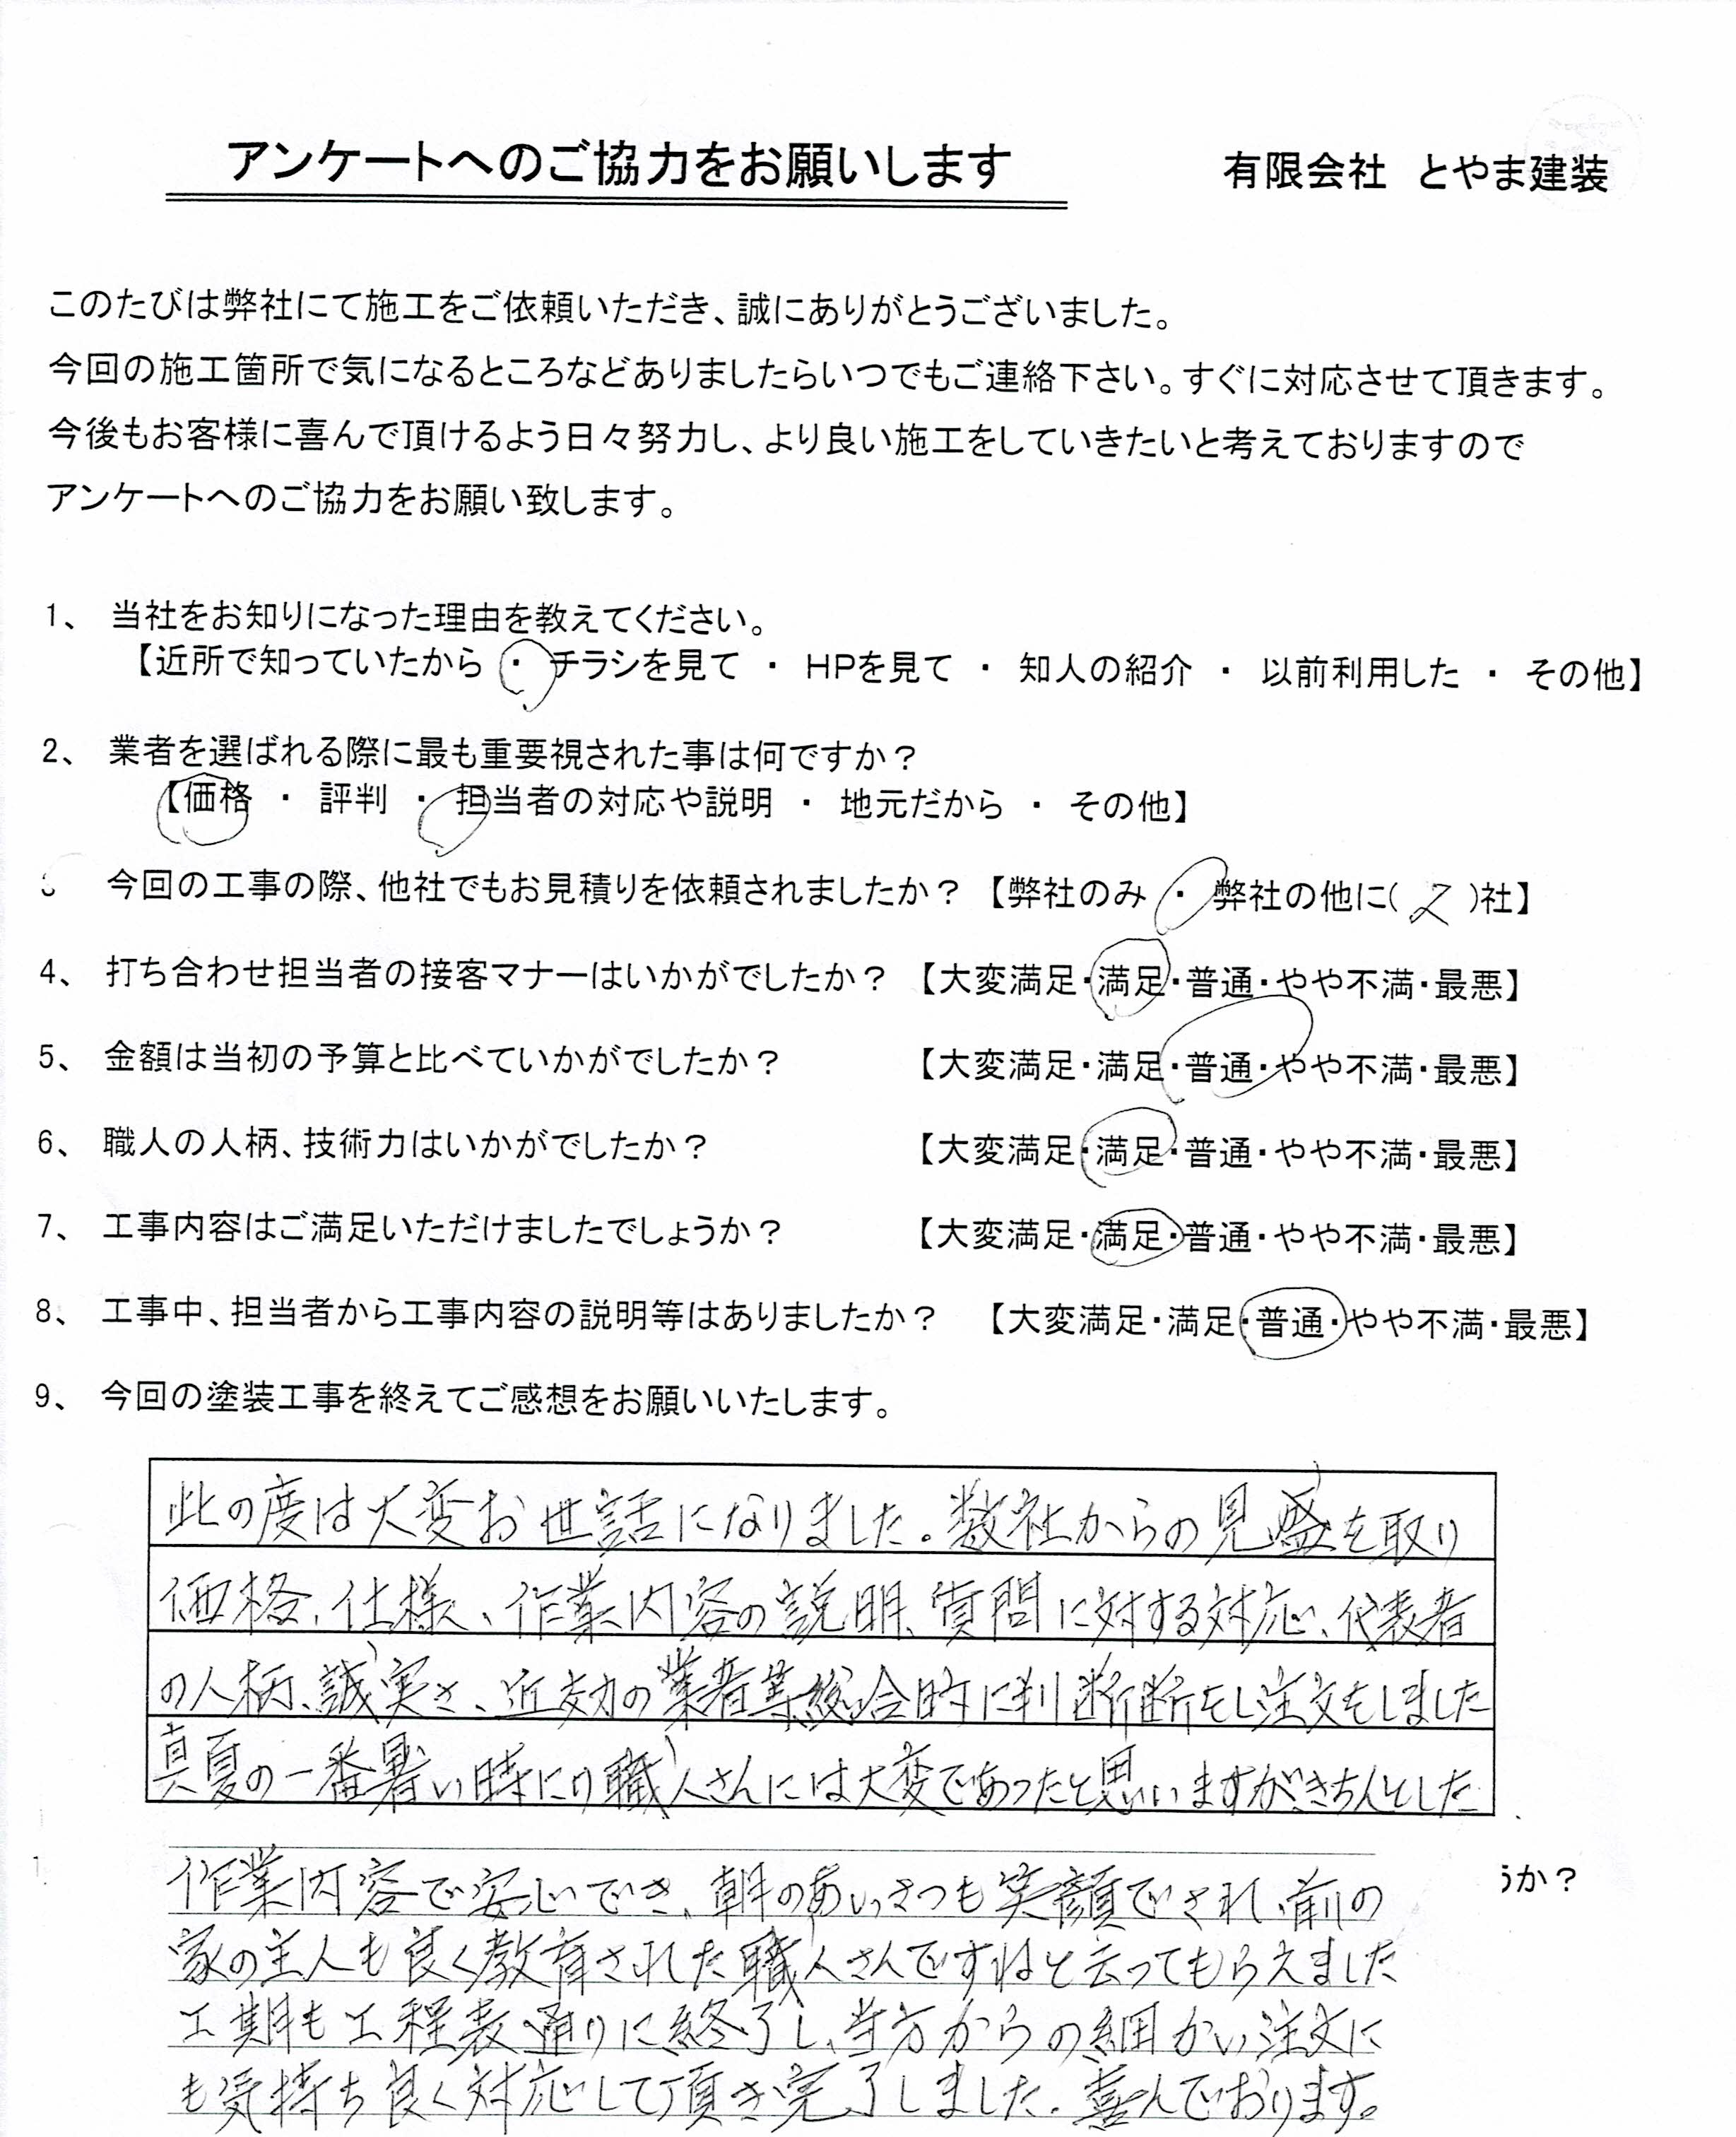 アンケートへのご協力をお願いします
有限会社　とやま建装
このたびは弊社にて施工をご依頼いただき、誠にありがとうございました。
今回の施工箇所で気になるところなどありましたらいつでもご連絡下さい。すぐに対応させて頂きます。
今後もお客様に喜んで頂けるよう日々努力し、より良い施工をしていきたいと考えておりますので
アンケートへのご協力をお願い致します。
1、　当社をお知りになった理由を教えてください。
【近所で知っていたから ・ チラシを見て ・ HPを見て ・ 知人の紹介 ・ 以前利用した ・ その他】
2、　業者を選ばれる際に最も重要視された事は何ですか？
【価格 ・ 評判 ・ 担当者の対応や説明 ・ 地元だから ・ その他】
今回の工事の際、他社でもお見積りを依頼されましたか？ 【弊社のみ ・ 弊社の他に( 2 )社】
4、　打ち合わせ担当者の接客マナーはいかがでしたか？ 【大変満足・満足・普通・やや不満・最悪】
5、　金額は当初の予算と比べていかがでしたか？ 【大変満足・満足・普通・やや不満・最悪】
6、　職人の人柄、技術力はいかがでしたか？ 【大変満足・満足・普通・やや不満・最悪】
7、　工事内容はご満足いただけましたでしょうか？ 【大変満足・満足・普通・やや不満・最悪】
8、　工事中、担当者から工事内容の説明等はありましたか？ 【大変満足・満足・普通・やや不満・最悪】
9、　今回の塗装工事を終えてご感想をお願いいたします。
此の度は大変お世話になりました。数社からの見盛を取り
価格、仕様、作業内容の説明、質問に対する対応、代表者
の人柄、誠実さ、近効の業者等総合的に判断断をし注文をしました
真夏の一番暑い時にり職人さんには大変であったと思いますが、きちんとした
作業内容で安心でき、朝のあいさつも笑顔でされ、前の
うか？
家の主人も良く教育された職人さんですねと云ってもらえました
工期も工程表通りに終了し、当方からの細かい注文に
も気持ち良く対応して頂き完了しました。喜んでおります。